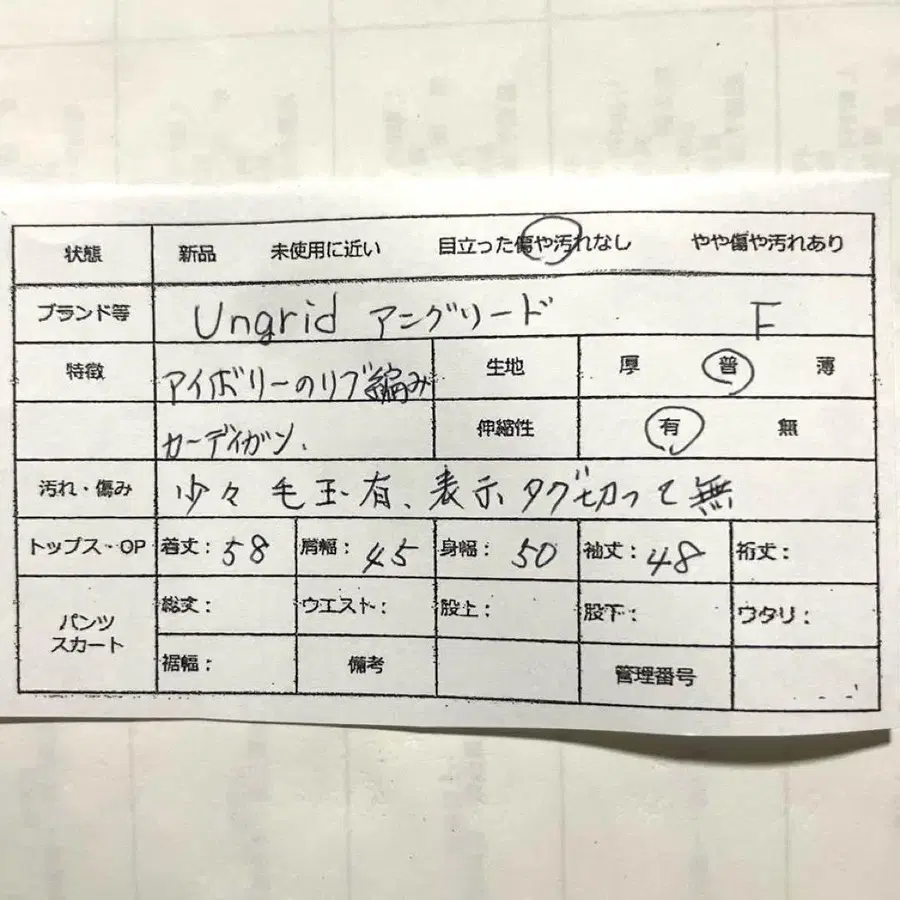 状態 新品 未使用に近い 目立った傷や汚れなし やや傷や汚れあり
ブランド等 Ungrid アングリード F
特徴 アイボリーのリブ編み 生地 厚 普 薄
カーディガン、 伸縮性 有 無
汚れ・傷み 少々毛玉有、表示タグ切って無
トップス・OP 着丈:58 肩幅:45 身幅:50 袖丈:48 裄丈:
パンツ 総丈: ウエスト: 股上: 股下: ワタリ:
スカート
裾幅: 備考 管理番号